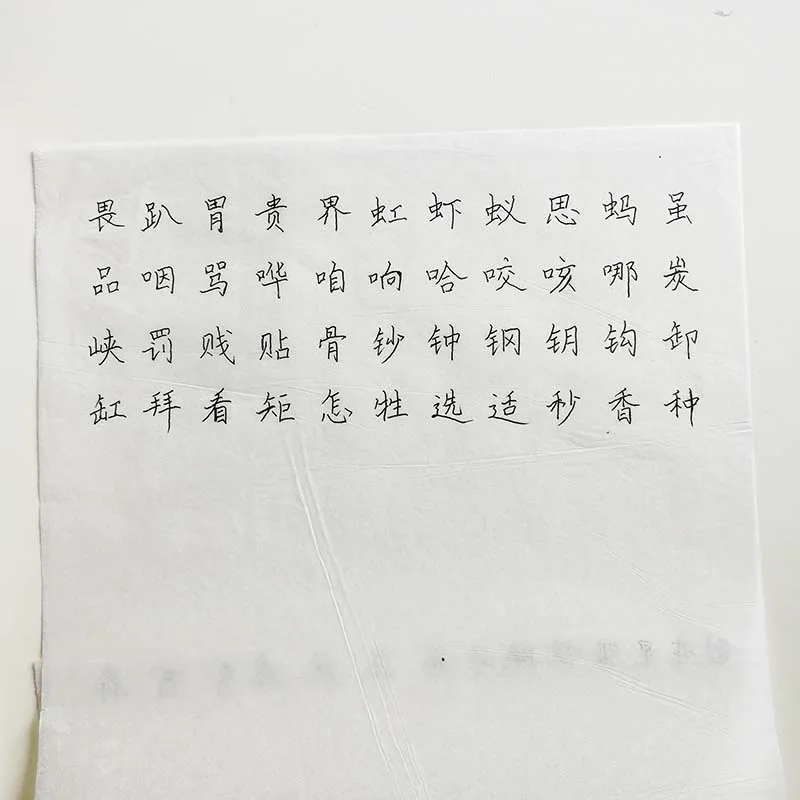 畏 趴 胃 贵 界 虹 虾 蚁 思 蚂 虽
品 咽 骂 哗 咱 响 哈 咬 咳 哪 炭
峡 罚 贱 贴 骨 钞 钟 钢 钥 钩 卸
缸 拜 看 矩 怎 牲 选 适 秒 香 种